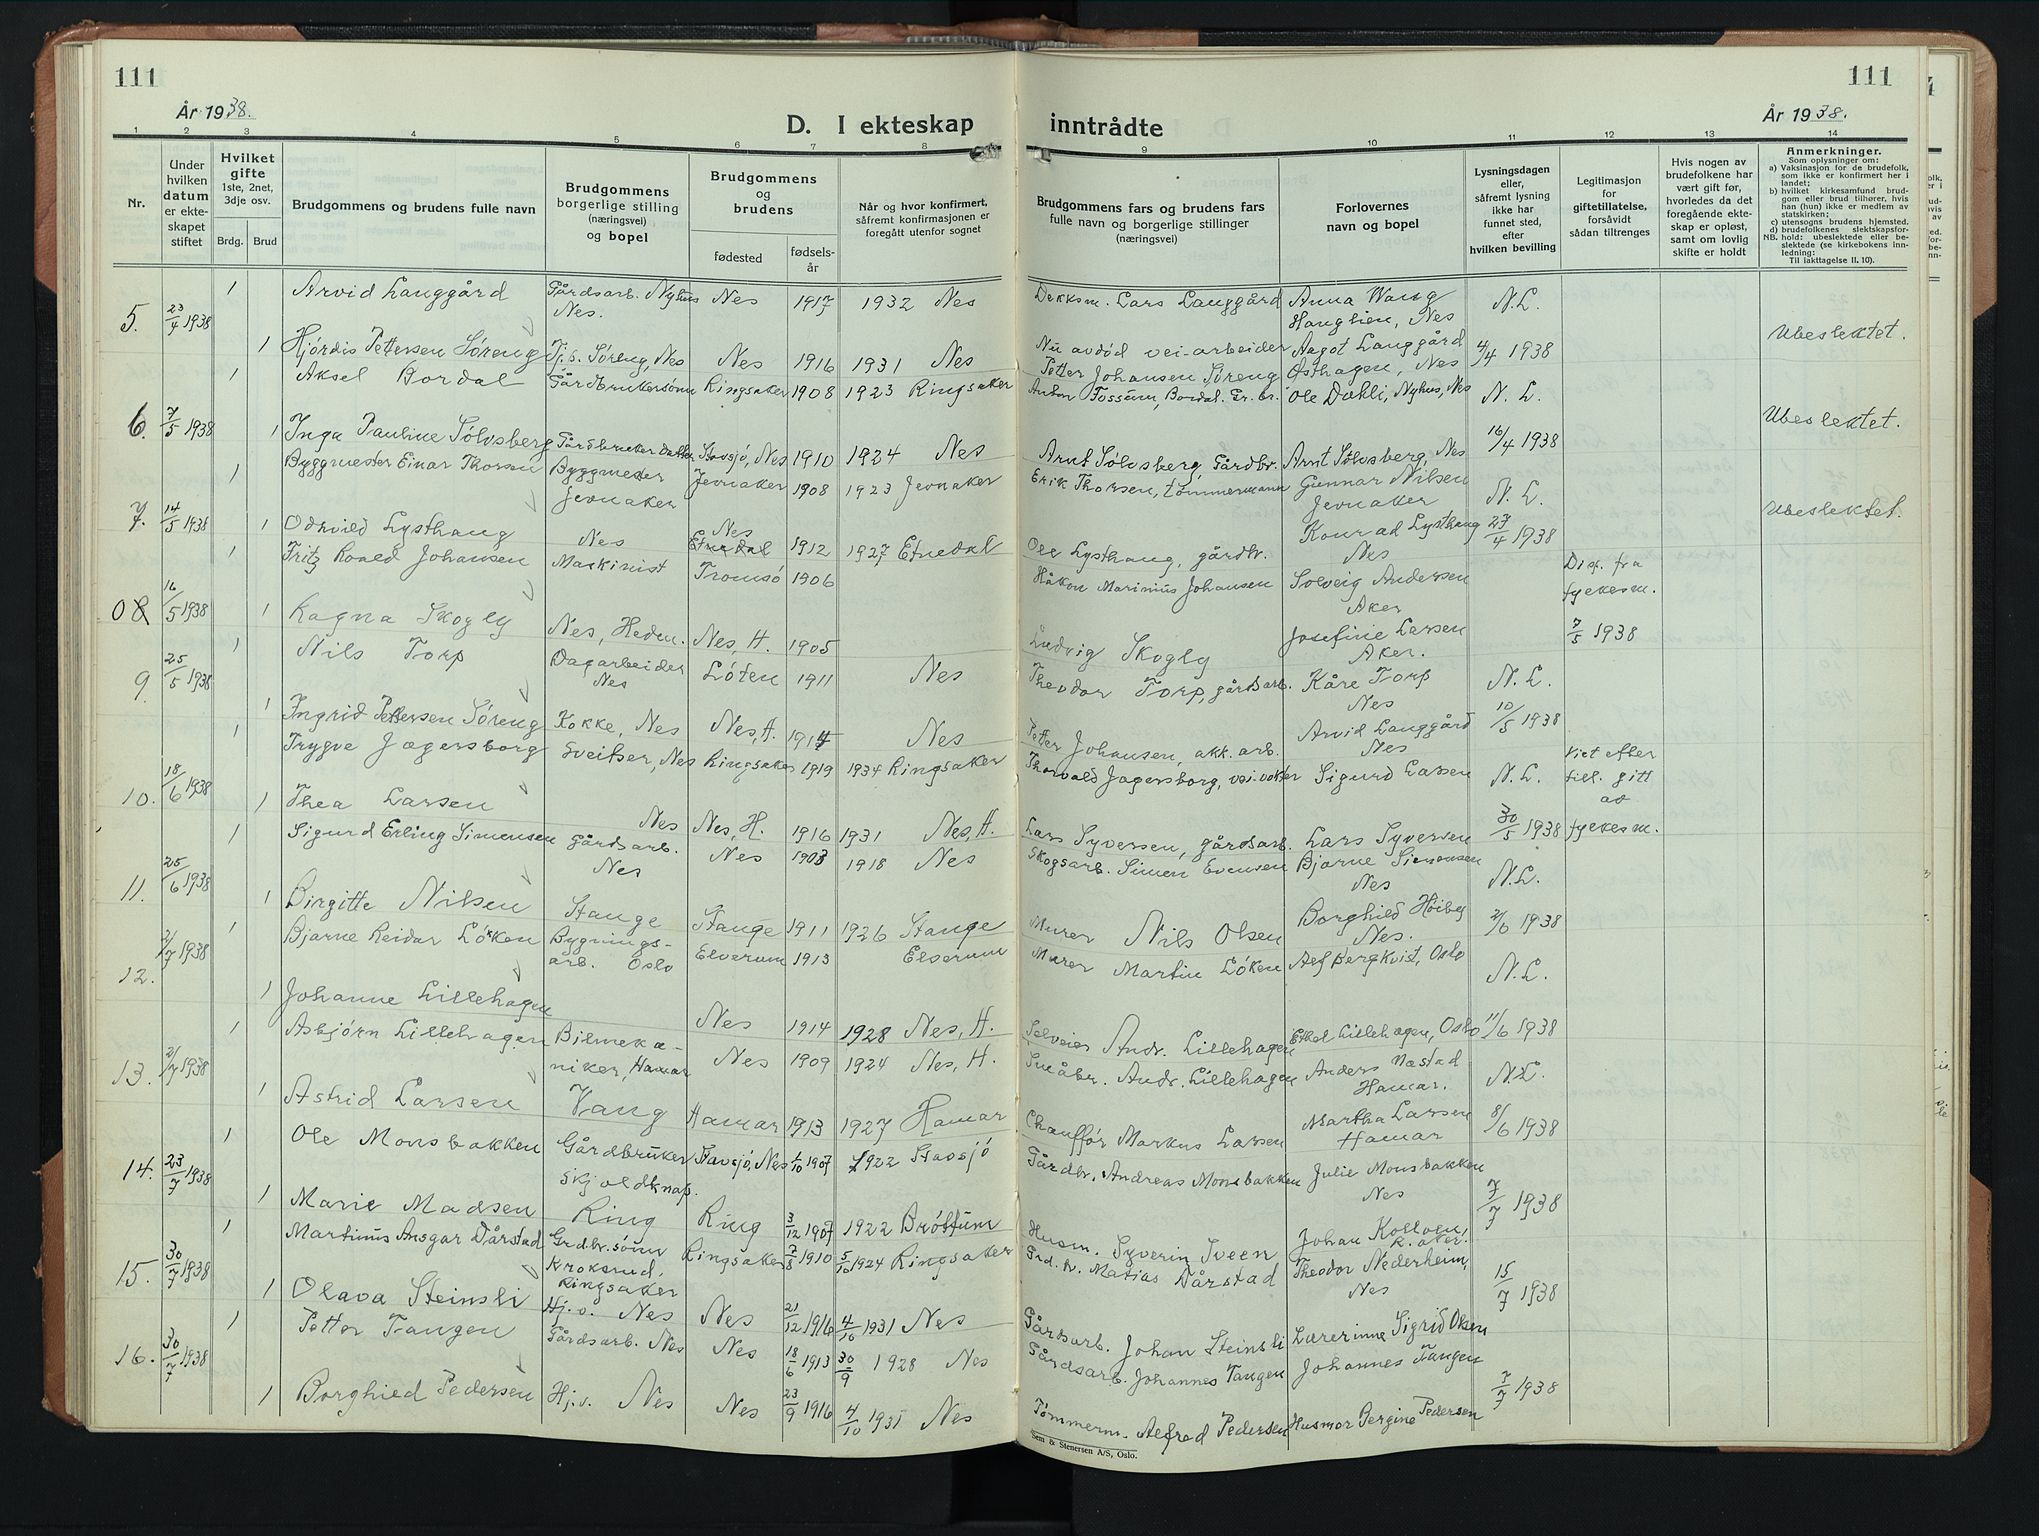 111
111
År 1938.
D. I ekteskap
inntrådte
År 1938.
1 2 3 4 5 6 7 8 9 10 11 12 13 14
Nr.
Under hvilken datum er ekteskapet stiftet
Hvilket gifte 1ste, 2net, 3dje osv.
Brdg. Brud
Brudgommens og brudens fulle navn
Brudgommens borgerlige stilling (næringsvei) og bopel
Brudgommens og brudens
fødested
fødselsår
Når og hvor konfirmert, såfremt konfirmasjonen er foregått utenfor sognet
Brudgommens fars og brudens fars fulle navn og borgerlige stillinger (næringsvei)
Forlovernes navn og bopel
Lysningsdagen eller, såfremt lysning ikke har funnet sted, efter hvilken bevilling
Legitimasjon for giftetillatelse, forsåvidt sådan tiltrenges
Hvis nogen av brudefolkene har vært gift før, hvorledes da det foregående ekteskap er opløst, samt om lovlig skifte er holdt
Anmerkninger.
Som oplysninger om:
a) Vaksinasjon for de brudefolk, som ikke er konfirmert her i landet;
b) hvilket kirkesamfund brudgom eller brud tilhører, hvis han (hun) ikke er medlem av statskirken;
c) utensogns brudens hjemsted.
d) brudefolkenes slektskapsforhold: ubeslektede eller beslektede (se kirkebokens innledning:
NB. Til iakttagelse II. 10).
5. 23/4 1938 1 Arvid Langgård Gårdsarb. Nyhus Nes. Nes 1917 1932 Nes Dekksm. Lars Langgård Anna Wang Hanglien, Nes N.L.
1 Hjördis Pettersen Söreng Tj. s. Söreng, Nes Nes 1916 1931 Nes Nu avdöd vei-arbeider Petter Johansen Söreng Aagot Langgård Østhagen, Nes 4/4 1938 Ubeslektet.
6. 7/5 1938 1 Aksel Bordal Gårdbrukersönn Ringsaker 1908 1923 Ringsaker Anton Fossum, Bordal. Gr. br. Ole Dæhli, Nyhus, Nes N. L.
1 Inga Pauline Sölvsberg Gårdbruker datter Stavsjö, Nes 1910 1924 Nes Arnt Sölvsberg, Gårdbr. Arnt Sölvsberg, Nes 16/4 1938 Ubeslektet.
7. 14/5 1938 1 Byggmester Einar Thorsen Byggmester Jevnaker Jevnaker 1908 1923 Jevnaker Erik Thorsen, tömmermann Gunnar Nilsen Jevnaker N. L.
1 Odrvild Lysthaug Nes Nes Etnedal 1912 1927 Etnedal Ole Lysthaug, gårdbr. Konrad Lysthaug Nes 27/4 1938 Ubeslektet.
08 16/5 1938 1 Fritz Roald Johansen Maskinist Tromsö 1906 Håkon Marinius Johansen Solveig Andersen Aker Disp. fra fyekesm.
1 Ragna Skogly Nes, Hedm. Nes, H. 1905 Ludvig Skogly Josefine Larsen Aker. 7/5 1938
9 25/5 1938 1 Nils Torp Dagarbeider Nes Löten 1911 Nes Theodor Torp, gårdsarb. Kåre Torp Nes N. L.
1 Ingrid Pettersen Söreng Kokke, Nes Nes, H. 1914 Nes Petter Johansen, akk. arb. Arvid Langgård Nes 10/5 1938
10. 18/6 1938 1 Trygve Jagersborg Sveitser, Nes Ringsaker 1919 1934 Ringsaker Thorvald Jagersborg, vei-vokter Sigurd Larsen N. L. Viet efter till. gitt av fyekesm.
1 Thea Larsen Nes Nes, H. 1916 1931 Nes, H. Lars Syversen, gårdsarb. Lars Syversen 30/5 1938
11. 25/6 1938 1 Sigurd Erling Simensen Gårdsarb. Nes Nes 1903 1918 Nes Skogsarb. Simen Evensen Bjarne Simensen Nes N.L.
1 Birgitte Nilsen Stange Stange 1911 1926 Stange Murer Nils Olsen Borghild Höiby Nes. 2/6 1938
12. 2/7 1938 1 Bjarne Reidar Löken Bygningsarb. Oslo Elverum 1913 Elverum Murer Martin Löken Alf Bergkvist, Oslo N. L.
1 Johanne Lillehagen Nes 1914 1928 Nes, H. Selveier Andr. Lillehagen Ethel Lillehagen, Oslo 11/6 1938
13. 2/7 1938 1 Asbjörn Lillehagen Bilmekaniker, Hamar Nes 1909 1924 Nes, H. Småbr. Andr. Lillehagen Anders Næstad Hamar. N.L.
1 Astrid Larsen Vang Hamar 1913 1927 Hamar Chaufför Markus Larsen Martha Larsen Hamar 8/6 1938
14. 23/7 1938 1 Ole Monsbakken Gårdbruker Skjoldknap. Stavsjö, Nes 1/10 1907 1922 Stavsjö Gårdbr. Andreas Monsbakken Julie Monsbakken Nes
1 Marie Madsen Ring Ring 3/12 1907 1922 Bröttum Husm. Syverin Sveen Johan Kolloen, R.aker. 7/7 1938
15. 30/7 1938 1 Martinus Ansgar Dårstad Grd.br.sönn Kroksrud, Ringsaker Ringsaker 7/8 1910 5/10 1924 Ringsaker Grd. br. Matias Dårstad Theodor Nederheim, Nes
1 Olava Steinsli Hj. v. Nes Nes 21/12 1916 4/10 1931 Nes Gårdsarb. Johan Steinsli Lærerinne Sigrid Olsen 15/7 1938
16. 30/7 1938 1 Petter Tangen Gårdsarb. Nes Nes 18/6 1913 30/9 1928 Nes Gårdsarb. Johannes Tangen Johannes Tangen
1 Borghild Pedersen Hj. v. Nes Nes 23/9 1916 4/10 1931 Nes Tömmerm. Alfred Pedersen Husmor Bergine Pedersen 7/7 1938
Sem & Stenersen A/S, Oslo.